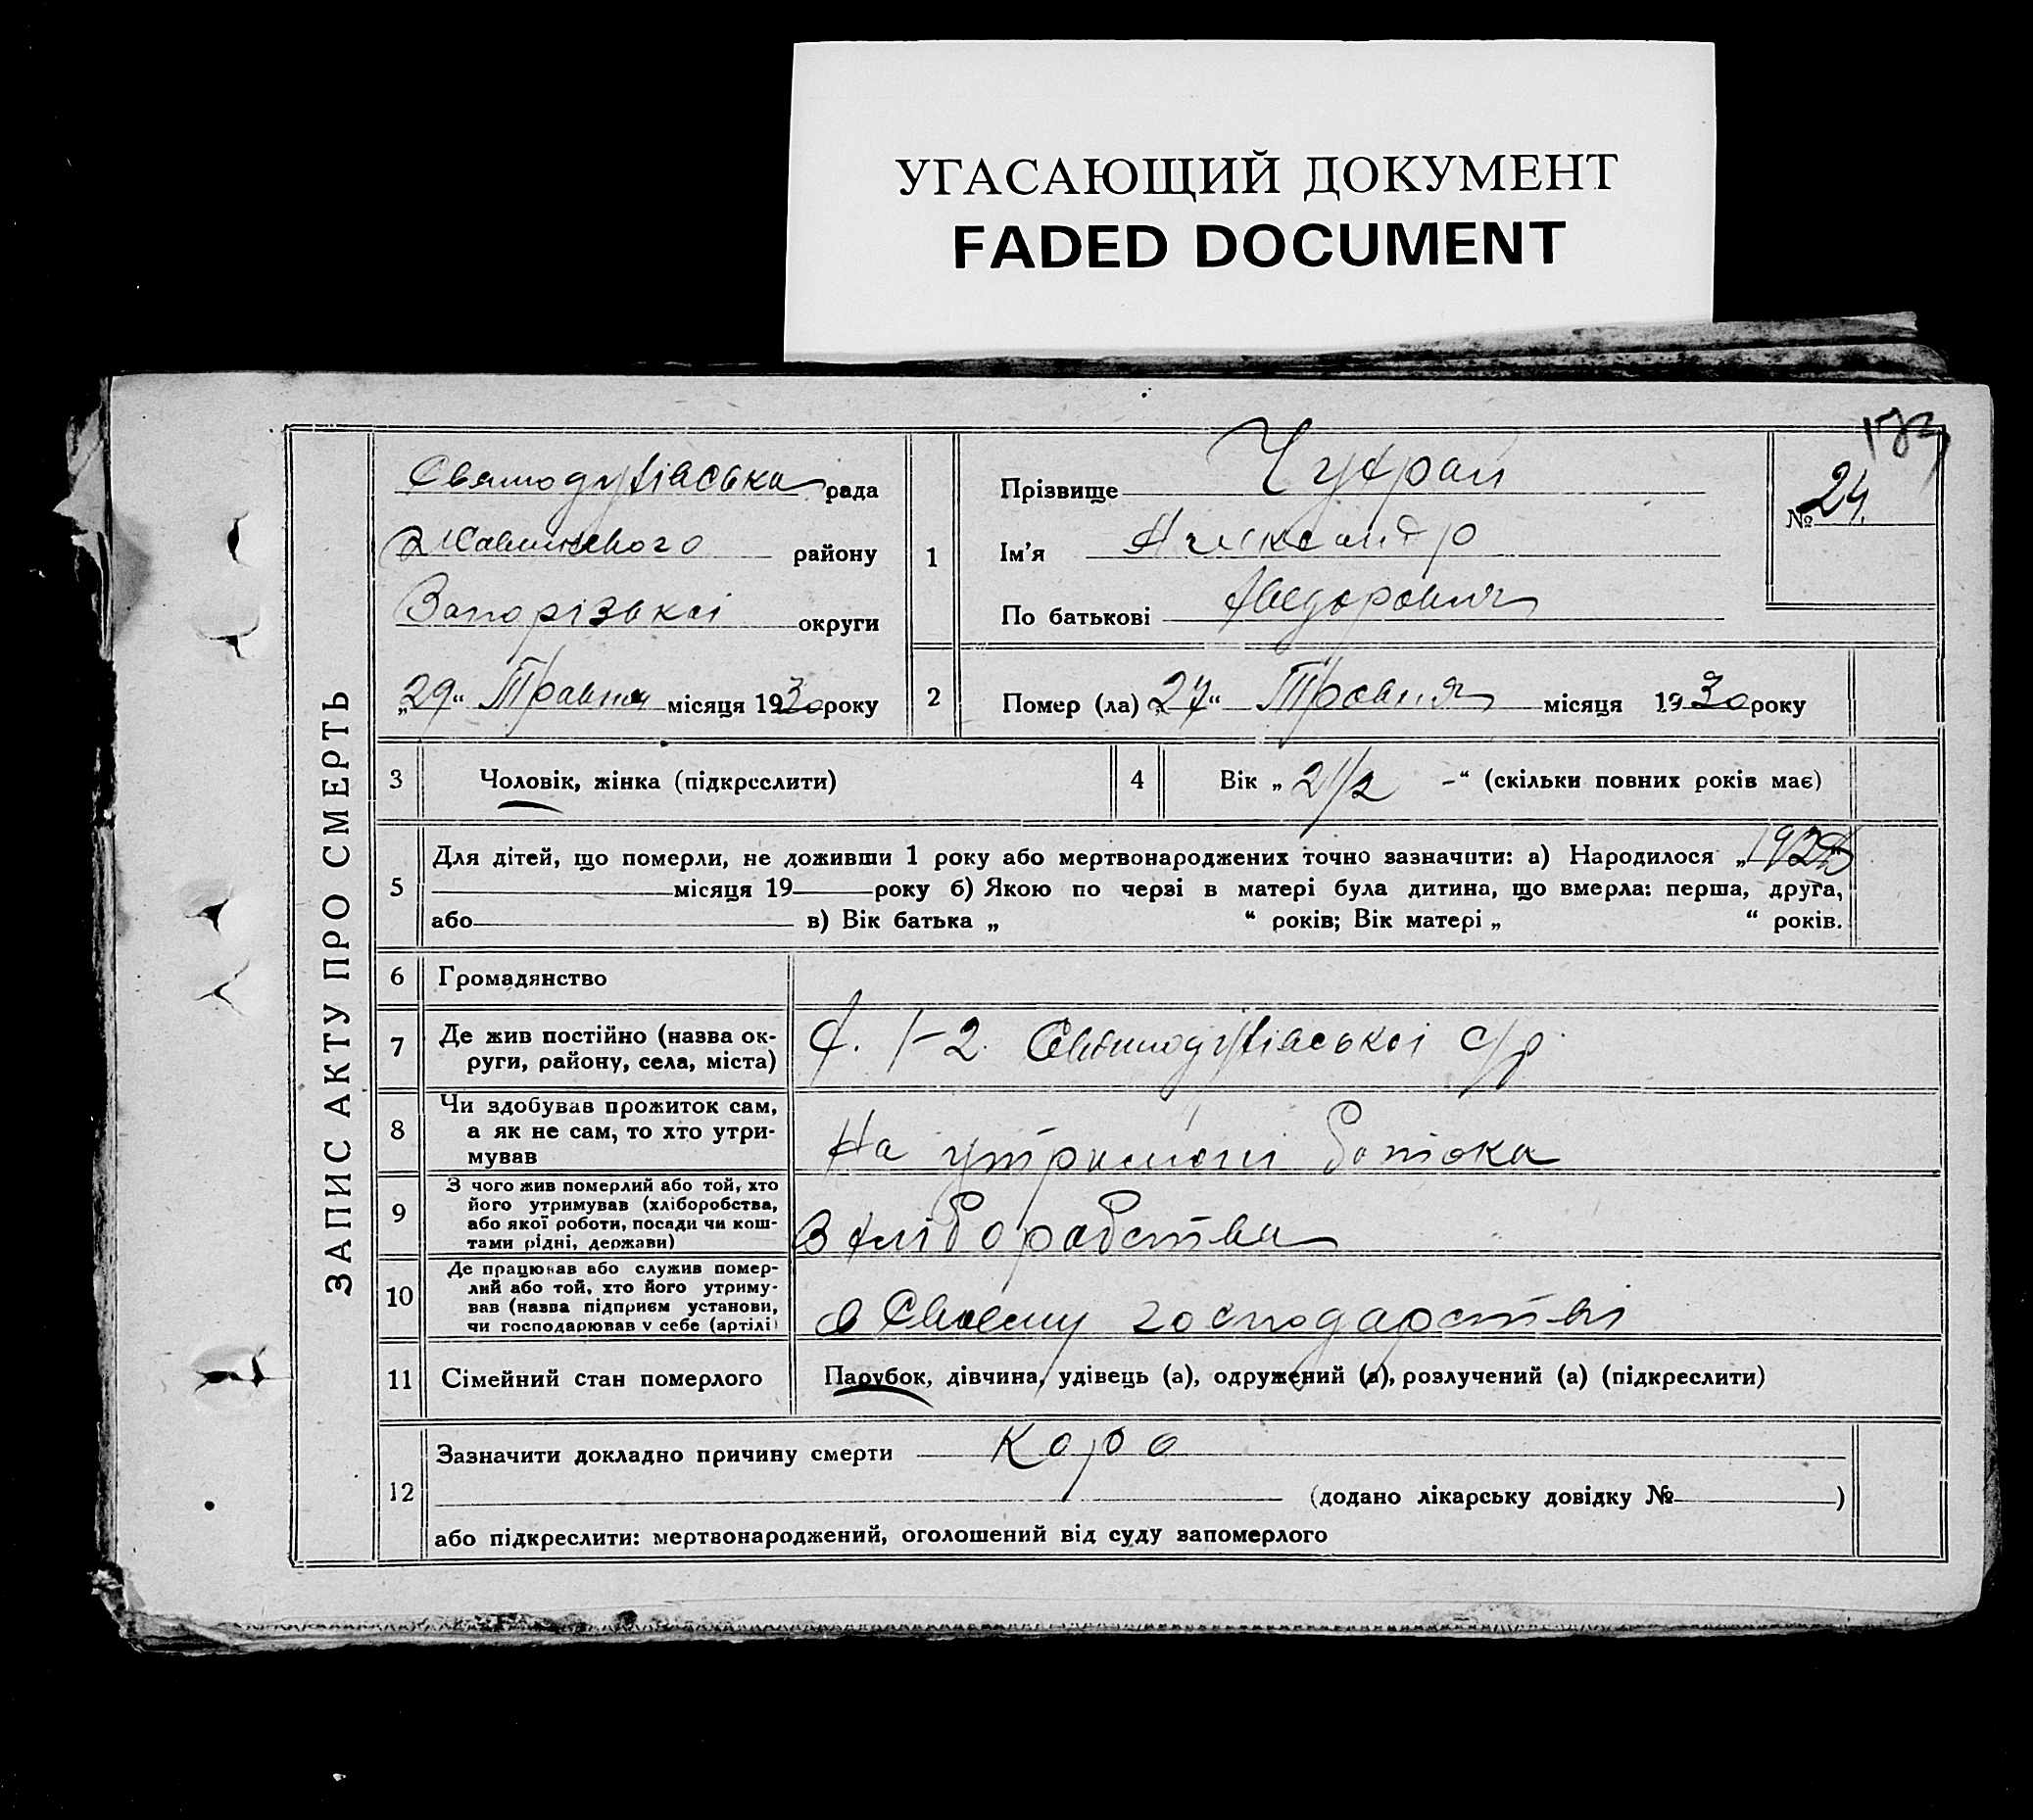 УГАСАЮЩИЙ ДОКУМЕНТ
FADED DOCUMENT
173
ЗАПИС АКТУ ПРО СМЕРТЬ
Святодухівська рада
району
Запорізької округи
„29“ Травня місяця 1930 року
1
Прізвище Чухрай
Ім'я Александр
По батькові Хведорович
№ 24
2
Помер (ла) „27“ Травня місяця 1930 року
3 Чоловік, жінка (підкреслити)
4 Вік „2 1/2 -“ (скільки повних років має)
5 Для дітей, що померли, не доживши 1 року або мертвонароджених точно зазначити: а) Народилося „192
місяця 19 року б) Якою по черзі в матері була дитина, що вмерла: перша, друга,
або в) Вік батька „ “ років; Вік матері „ “ років.
6 Громадянство
7 Де жив постійно (назва ок-
руги, району, села, міста)
Х. 1-2. Святодухівської с/р.
8 Чи здобував прожиток сам,
а як не сам, то хто утри-
мував
На утримані батька
9 З чого жив померлий або той, хто
його утримував (хліборобства,
або якої роботи, посади чи кош-
тами рідні, держави)
З хліборобства
10 Де працював або служив помер-
лий або той, хто його утриму-
вав (назва підприєм установи,
чи господарював у себе (артілі)
в Своему господарстві
11 Сімейний стан померлого
Парубок, дівчина, удівець (а), одружений (а), розлучений (а) (підкреслити)
12 Зазначити докладно причину смерти Кора
(додано лікарську довідку № )
або підкреслити: мертвонароджений, оголошений від суду запомерлого